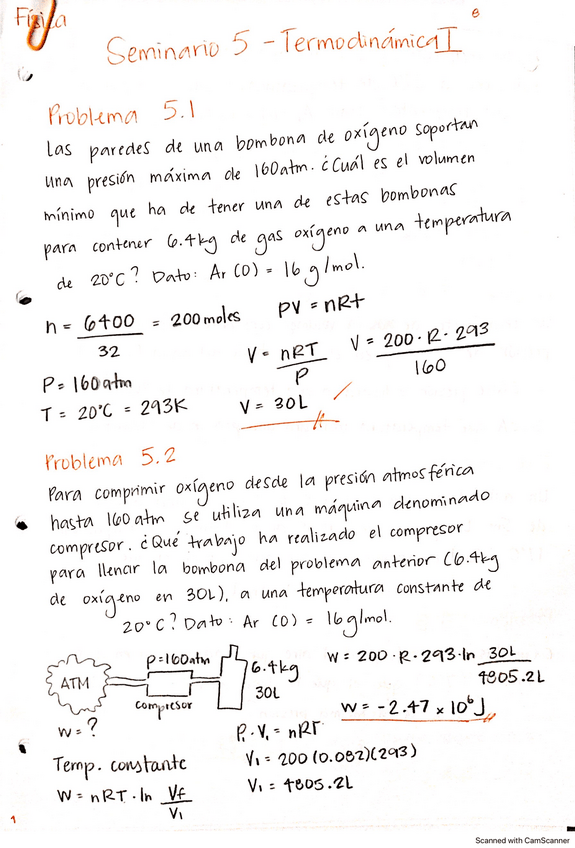 Física
8
Seminario 5 - Termodinámica I
Problema 5.1
Las paredes de una bombona de oxígeno soportan
una presión máxima de 160atm. ¿Cuál es el volumen
mínimo que ha de tener una de estas bombonas
para contener 6.4kg de gas oxígeno a una temperatura
de 20°C? Dato: Ar (O) = 16 g/mol.
n = 6400 / 32 = 200 moles
PV = nRt
V = nRT / P
V = 200 · R · 293 / 160
P = 160 atm
T = 20°C = 293K
V = 30L
Problema 5.2
Para comprimir oxígeno desde la presión atmosférica
hasta 160 atm se utiliza una máquina denominado
compresor. ¿Qué trabajo ha realizado el compresor
para llenar la bombona del problema anterior (6.4kg
de oxígeno en 30L), a una temperatura constante de
20°C? Dato: Ar (O) = 16g/mol.
ATM
P=160atm
compresor
6.4kg
30L
W = ?
W = 200 · R · 293 · ln 30L / 4805.2L
W = -2.47 × 10⁶ J
Temp. constante
W = nRT · ln Vf / V1
P1 · V1 = nRT
V1 = 200 (0.082)(293)
V1 = 4805.2L
1
Scanned with CamScanner